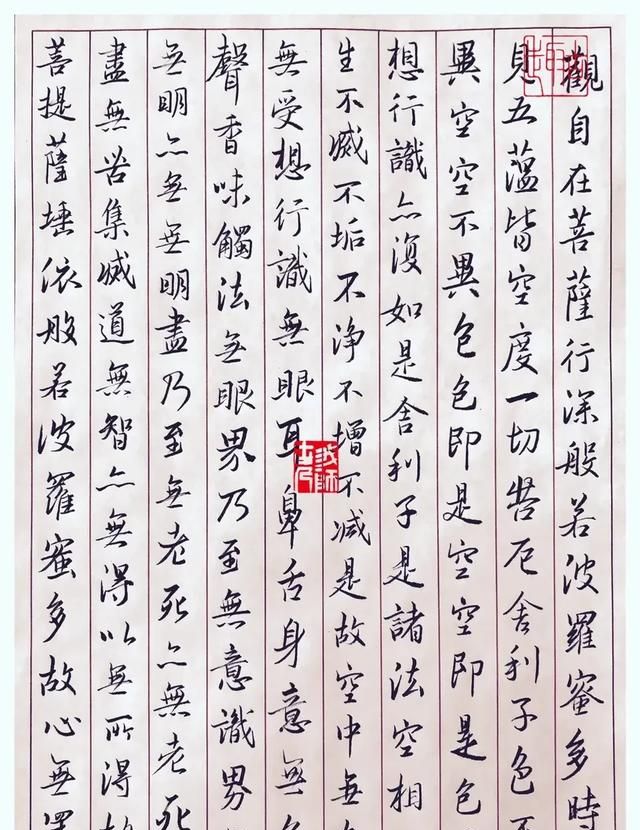 觀自在菩薩行深般若波羅蜜多時
見五蘊皆空度一切苦厄舍利子色不
異空空不異色色即是空空即是色
想行識亦復如是舍利子是諸法空相
生不滅不垢不净不增不减是故空中無
無受想行識無眼耳鼻舌身意無色
聲香味觸法無眼界乃至無意識界
無明亦無無明盡乃至無老死亦無老死
盡無苦集滅道無智亦無得以無所得故
菩提薩埵依般若波羅蜜多故心無罣